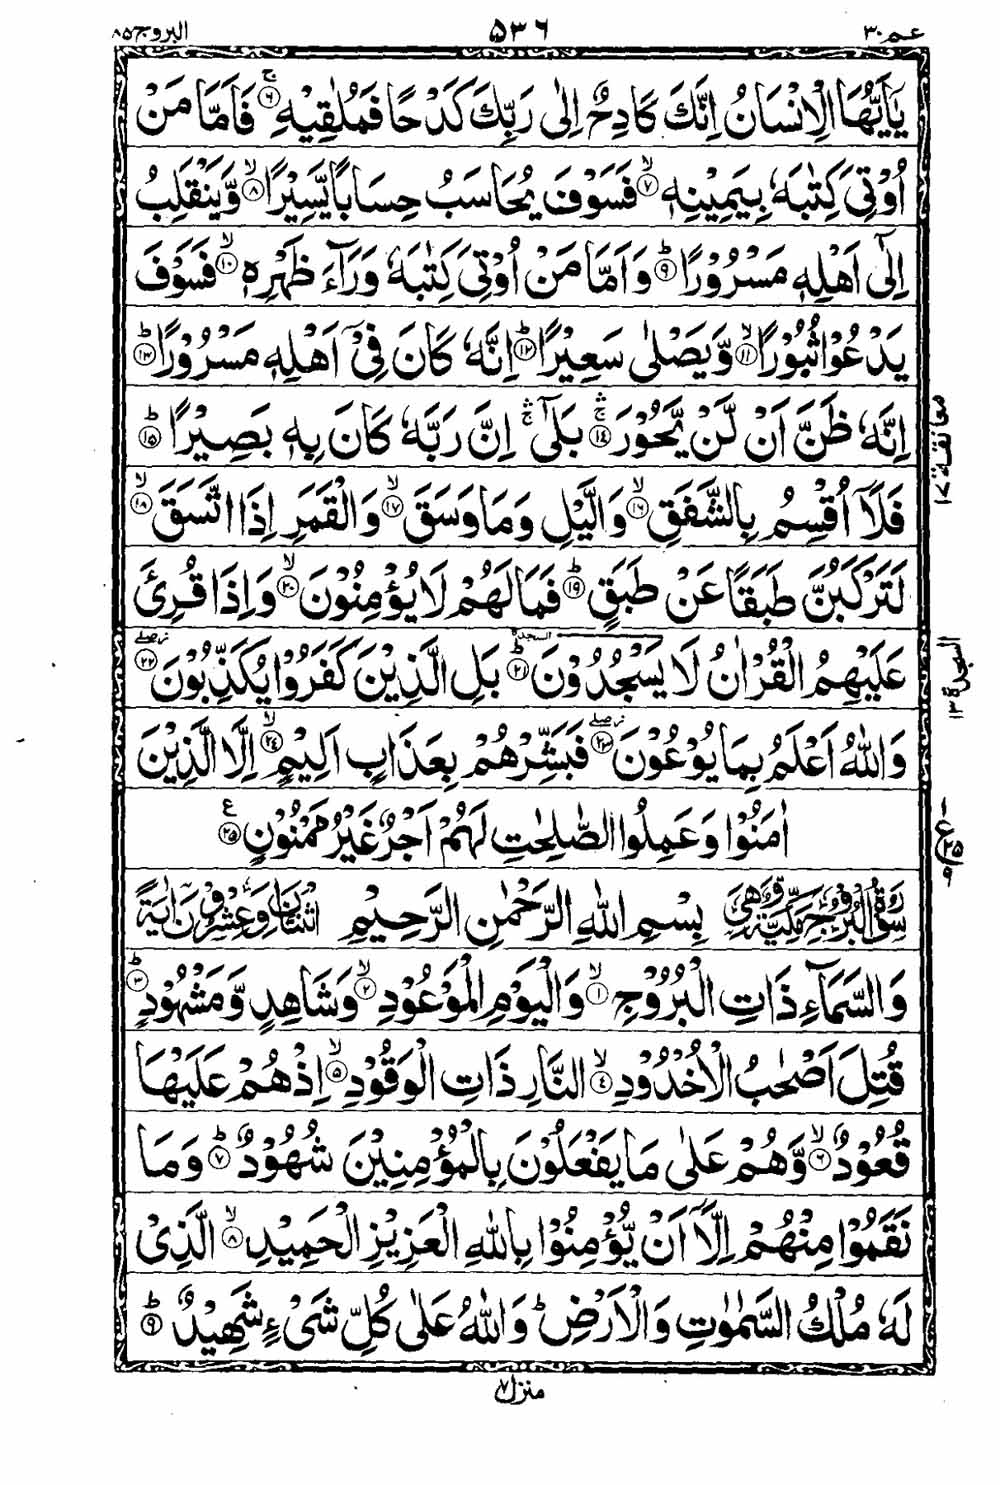 عـم ٣٠
٥٣٦
البروج ٨٥
يٰۤاَيُّهَا الْاِنْسَانُ اِنَّكَ كَادِحٌ اِلٰى رَبِّكَ كَدْحًا فَمُلٰقِيْهِ ۚ﴿۶﴾ فَاَمَّا مَنْ
اُوْتِيَ كِتٰبَهٗ بِيَمِيْنِهٖ ۙ﴿۷﴾ فَسَوْفَ يُحَاسَبُ حِسَابًا يَّسِيْرًا ۙ﴿۸﴾ وَّيَنْقَلِبُ
اِلٰۤى اَهْلِهٖ مَسْرُوْرًا ؕ﴿۹﴾ وَاَمَّا مَنْ اُوْتِيَ كِتٰبَهٗ وَرَآءَ ظَهْرِهٖ ۙ﴿۱۰﴾ فَسَوْفَ
يَدْعُوْا ثُبُوْرًا ۙ﴿۱۱﴾ وَّيَصْلٰى سَعِيْرًا ؕ﴿۱۲﴾ اِنَّهٗ كَانَ فِيْۤ اَهْلِهٖ مَسْرُوْرًا ؕ﴿۱۳﴾
اِنَّهٗ ظَنَّ اَنْ لَّنْ يَّحُوْرَ ۛۚ﴿۱۴﴾ بَلٰۤى ۛۚ اِنَّ رَبَّهٗ كَانَ بِهٖ بَصِيْرًا ؕ﴿۱۵﴾
معانقة ١٧
فَلَاۤ اُقْسِمُ بِالشَّفَقِ ۙ﴿۱۶﴾ وَالَّيْلِ وَمَا وَسَقَ ۙ﴿۱۷﴾ وَالْقَمَرِ اِذَا اتَّسَقَ ۙ﴿۱۸﴾
لَتَرْكَبُنَّ طَبَقًا عَنْ طَبَقٍ ؕ﴿۱۹﴾ فَمَا لَهُمْ لَا يُؤْمِنُوْنَ ۙ﴿۲۰﴾ وَاِذَا قُرِئَ
عَلَيْهِمُ الْقُرْاٰنُ لَا يَسْجُدُوْنَ السجدة ؕ﴿۲۱﴾ بَلِ الَّذِيْنَ كَفَرُوْا يُكَذِّبُوْنَ ۖ﴿۲۲﴾
السجدة ١٣
وَاللّٰهُ اَعْلَمُ بِمَا يُوْعُوْنَ ۖ﴿۲۳﴾ فَبَشِّرْهُمْ بِعَذَابٍ اَلِيْمٍ ۙ﴿۲۴﴾ اِلَّا الَّذِيْنَ
اٰمَنُوْا وَعَمِلُوا الصّٰلِحٰتِ لَهُمْ اَجْرٌ غَيْرُ مَمْنُوْنٍ ﴿۲۵﴾ ع
ع ١ ٢٥ ٩
سُوْرَةُ الْبُرُوْجِ مَكِّيَّةٌ وَّهِيَ بِسْمِ اللّٰهِ الرَّحْمٰنِ الرَّحِيْمِ اثْنَتَانِ وَعِشْرُوْنَ اٰيَةً
وَالسَّمَآءِ ذَاتِ الْبُرُوْجِ ۙ﴿۱﴾ وَالْيَوْمِ الْمَوْعُوْدِ ۙ﴿۲﴾ وَشَاهِدٍ وَّمَشْهُوْدٍ ؕ﴿۳﴾
قُتِلَ اَصْحٰبُ الْاُخْدُوْدِ ۙ﴿۴﴾ النَّارِ ذَاتِ الْوَقُوْدِ ۙ﴿۵﴾ اِذْ هُمْ عَلَيْهَا
قُعُوْدٌ ۙ﴿۶﴾ وَّهُمْ عَلٰى مَا يَفْعَلُوْنَ بِالْمُؤْمِنِيْنَ شُهُوْدٌ ؕ﴿۷﴾ وَمَا
نَقَمُوْا مِنْهُمْ اِلَّاۤ اَنْ يُّؤْمِنُوْا بِاللّٰهِ الْعَزِيْزِ الْحَمِيْدِ ۙ﴿۸﴾ الَّذِيْ
لَهٗ مُلْكُ السَّمٰوٰتِ وَالْاَرْضِ ؕ وَاللّٰهُ عَلٰى كُلِّ شَيْءٍ شَهِيْدٌ ؕ﴿۹﴾
منزل ٧